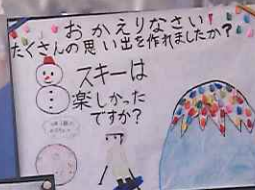 おかえりなさい!
たくさんの思い出を作れましたか?
スキーは
楽しかった
ですか?